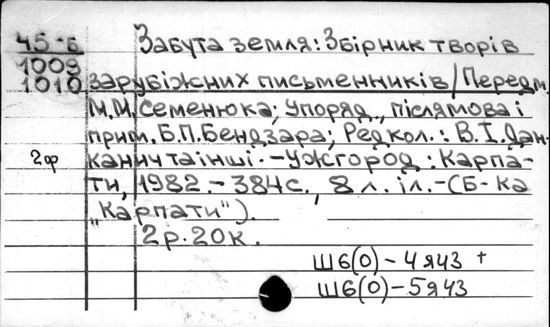 45-Б Забута земля: Збірник творів
1009
1010 зарубіжних письменників/Передм.
М.М. Семенюка; Упоряд., післямова і
прим. Б.П. Бендзара; Редкол.: В.І. Дан-
2ф канич та інші. - Ужгород: Карпа-
ти, 1982. - 384 с., 8 л. іл. - (Б-ка
„Карпати").
2р. 20к.
Ш6(0) - 4я43 +
Ш6(0) - 5я43